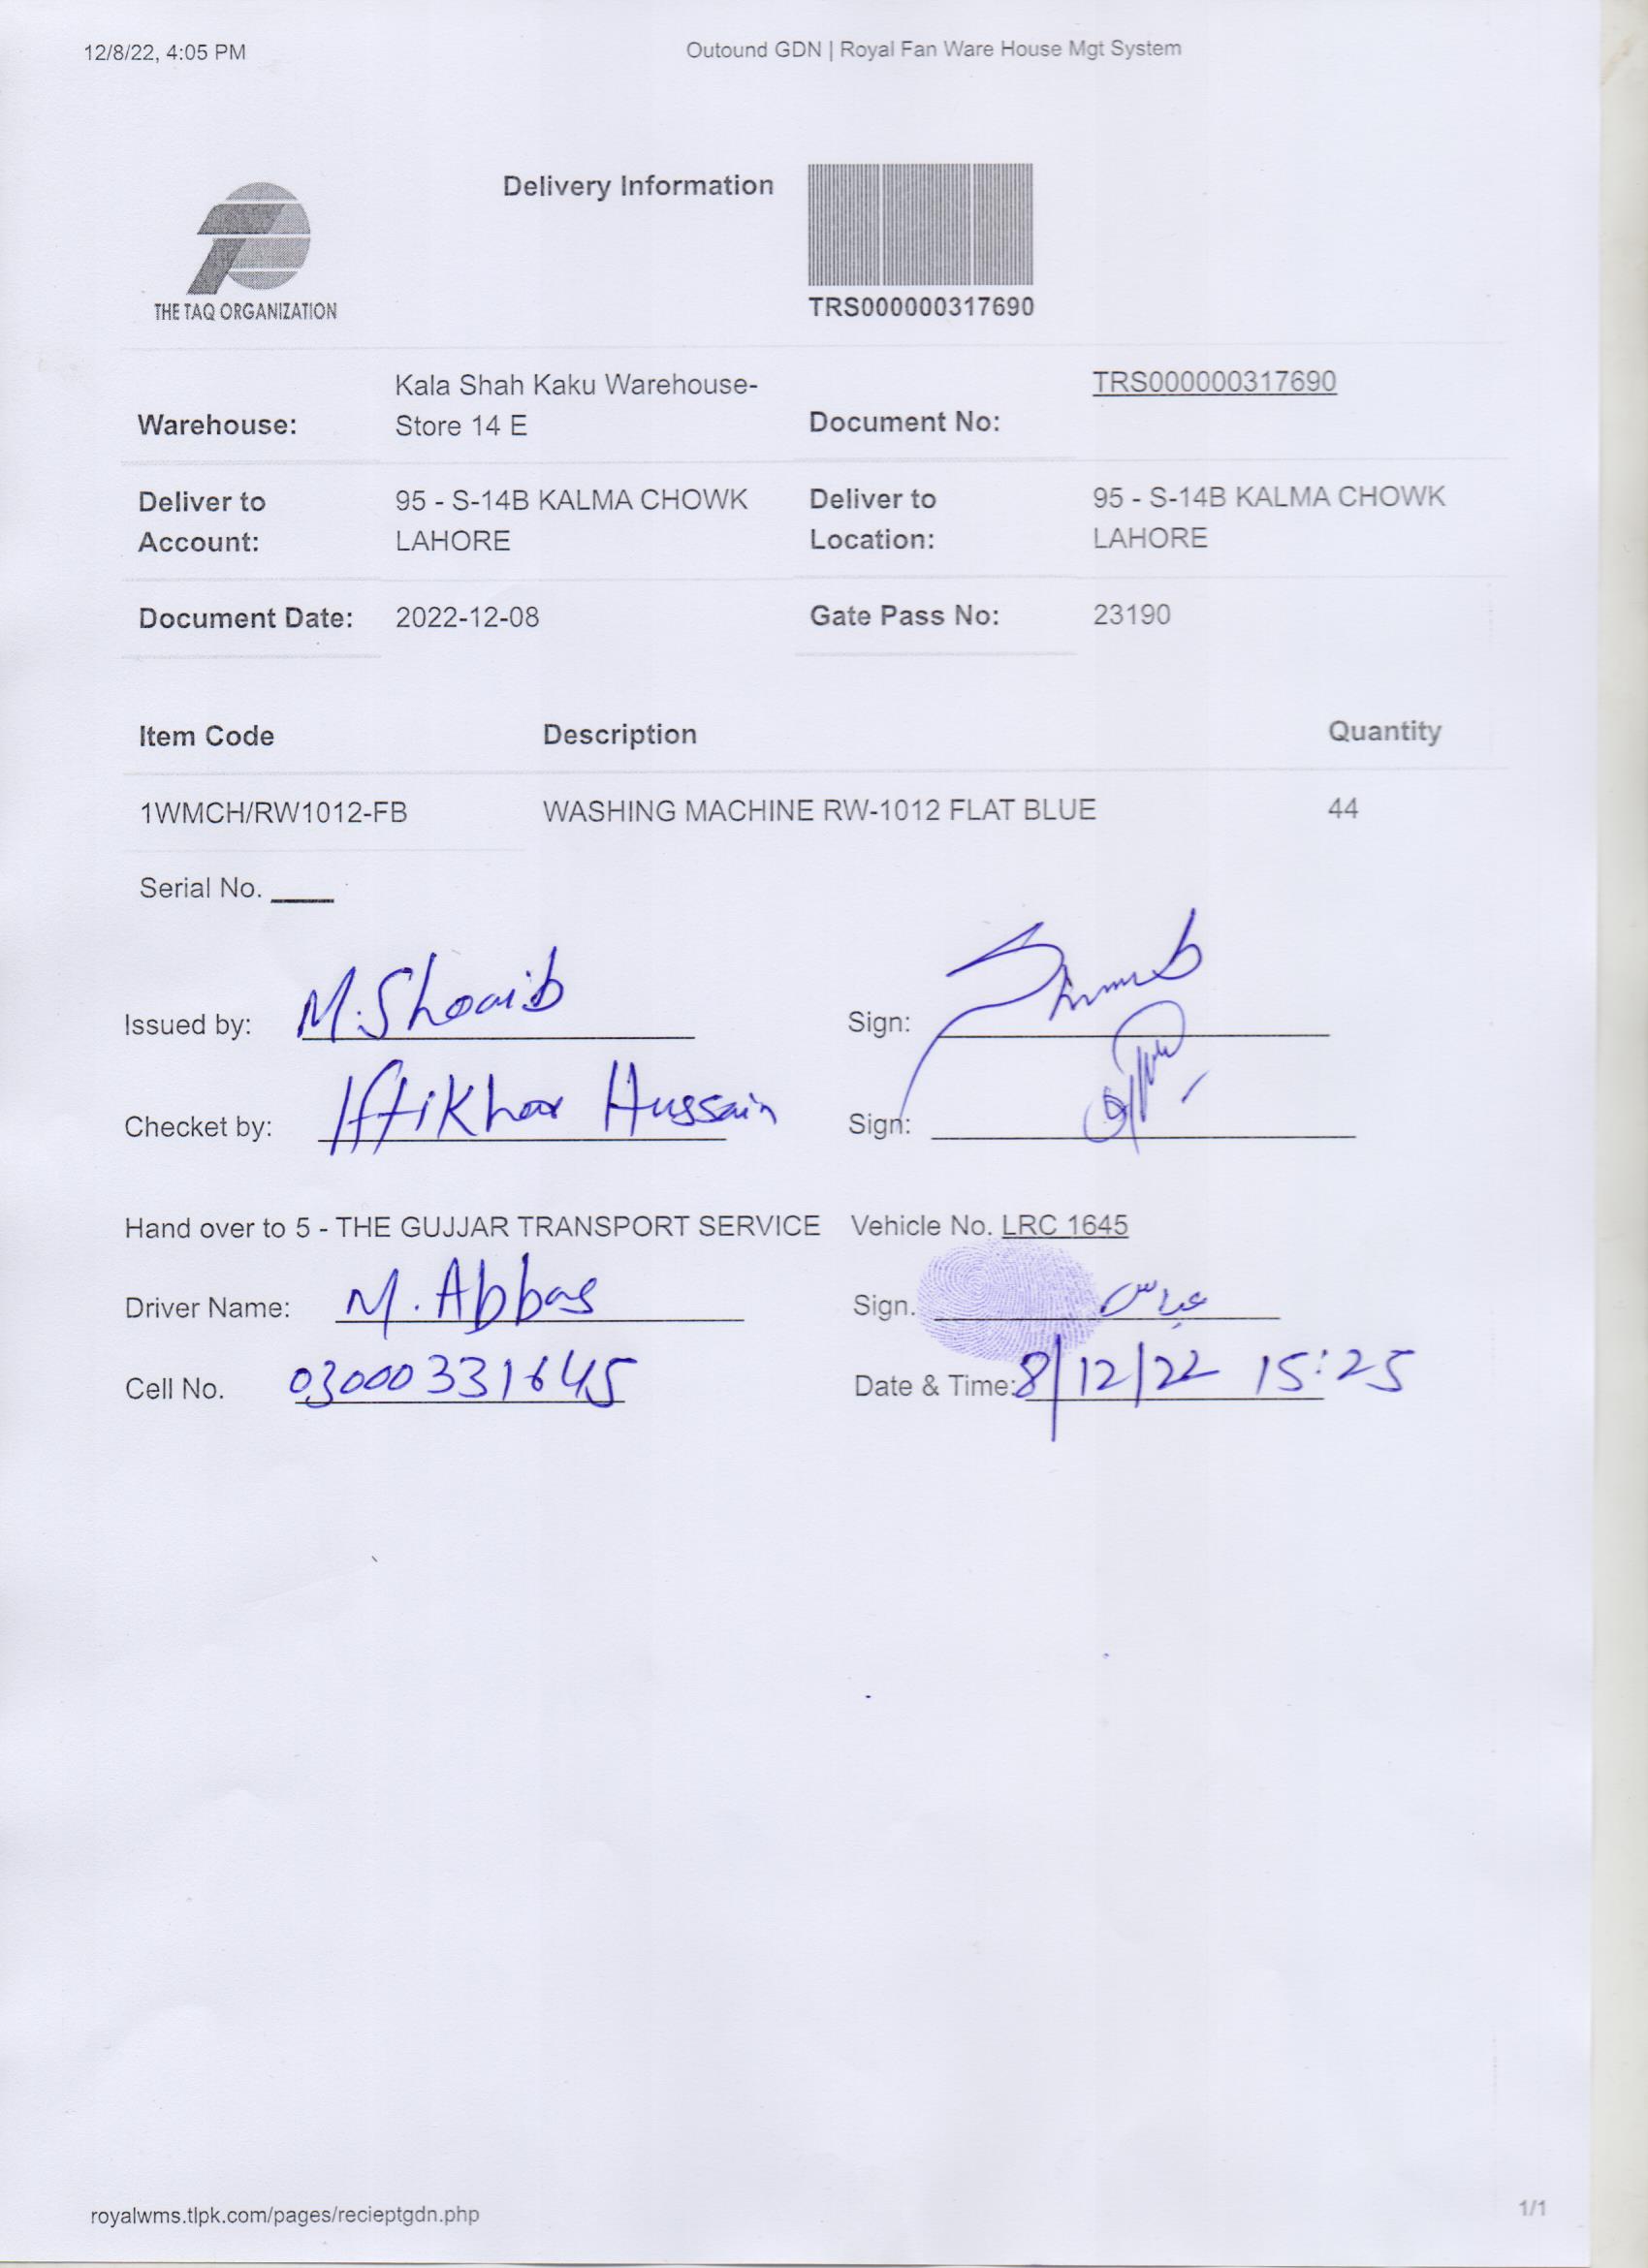 12/8/22, 4:05 PM Outound GDN | Royal Fan Ware House Mgt System
Delivery Information
THE TAQ ORGANIZATION
TRS000000317690
Warehouse: Kala Shah Kaku Warehouse-
Store 14 E
Document No: TRS000000317690
Deliver to
Account:
95 - S-14B KALMA CHOWK
LAHORE
Deliver to
Location:
95 - S-14B KALMA CHOWK
LAHORE
Document Date: 2022-12-08 Gate Pass No: 23190
Item Code Description Quantity
1WMCH/RW1012-FB WASHING MACHINE RW-1012 FLAT BLUE 44
Serial No. ____
Issued by: M. Shoaib Sign:
Checket by: Iftikhar Hussain Sign:
Hand over to 5 - THE GUJJAR TRANSPORT SERVICE Vehicle No. LRC 1645
Driver Name: M. Abbas Sign. عباس
Cell No. 03000331645 Date & Time: 8/12/22 15:25
royalwms.tlpk.com/pages/recieptgdn.php 1/1